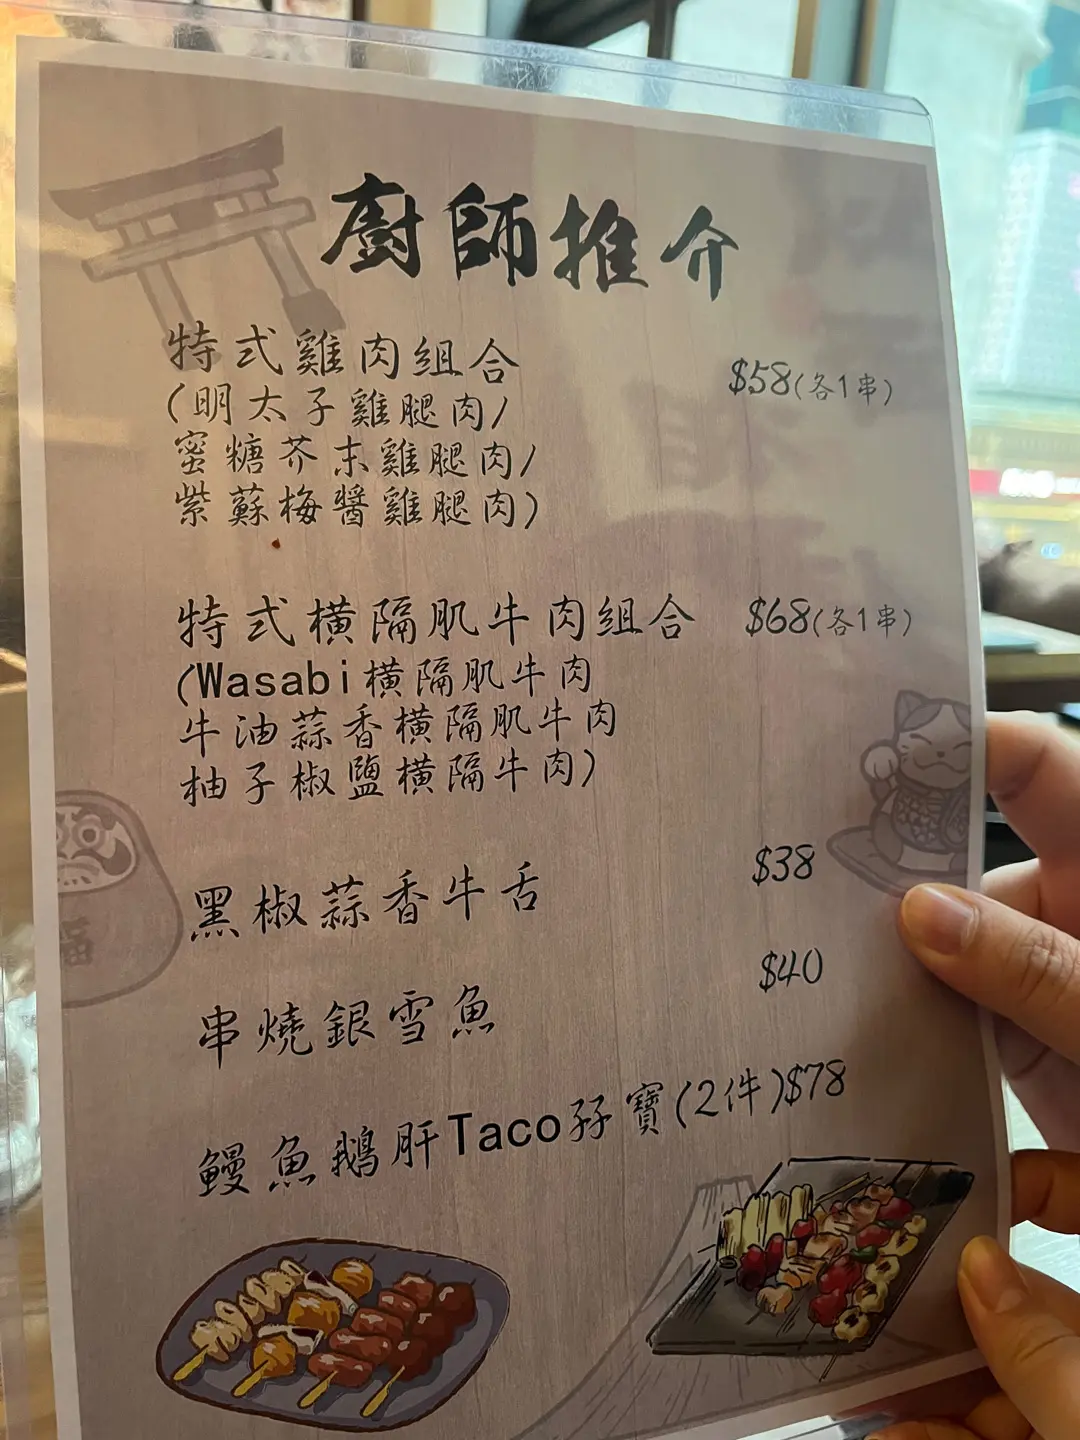 廚師推介
特式雞肉組合 $58(各1串)
(明太子雞腿肉/
蜜糖芥末雞腿肉/
紫蘇梅醬雞腿肉)
特式橫隔肌牛肉組合 $68(各1串)
(Wasabi橫隔肌牛肉
牛油蒜香橫隔肌牛肉
柚子椒鹽橫隔牛肉)
黑椒蒜香牛舌 $38
串燒銀雪魚 $40
鰻魚鵝肝Taco孖寶(2件)$78
福